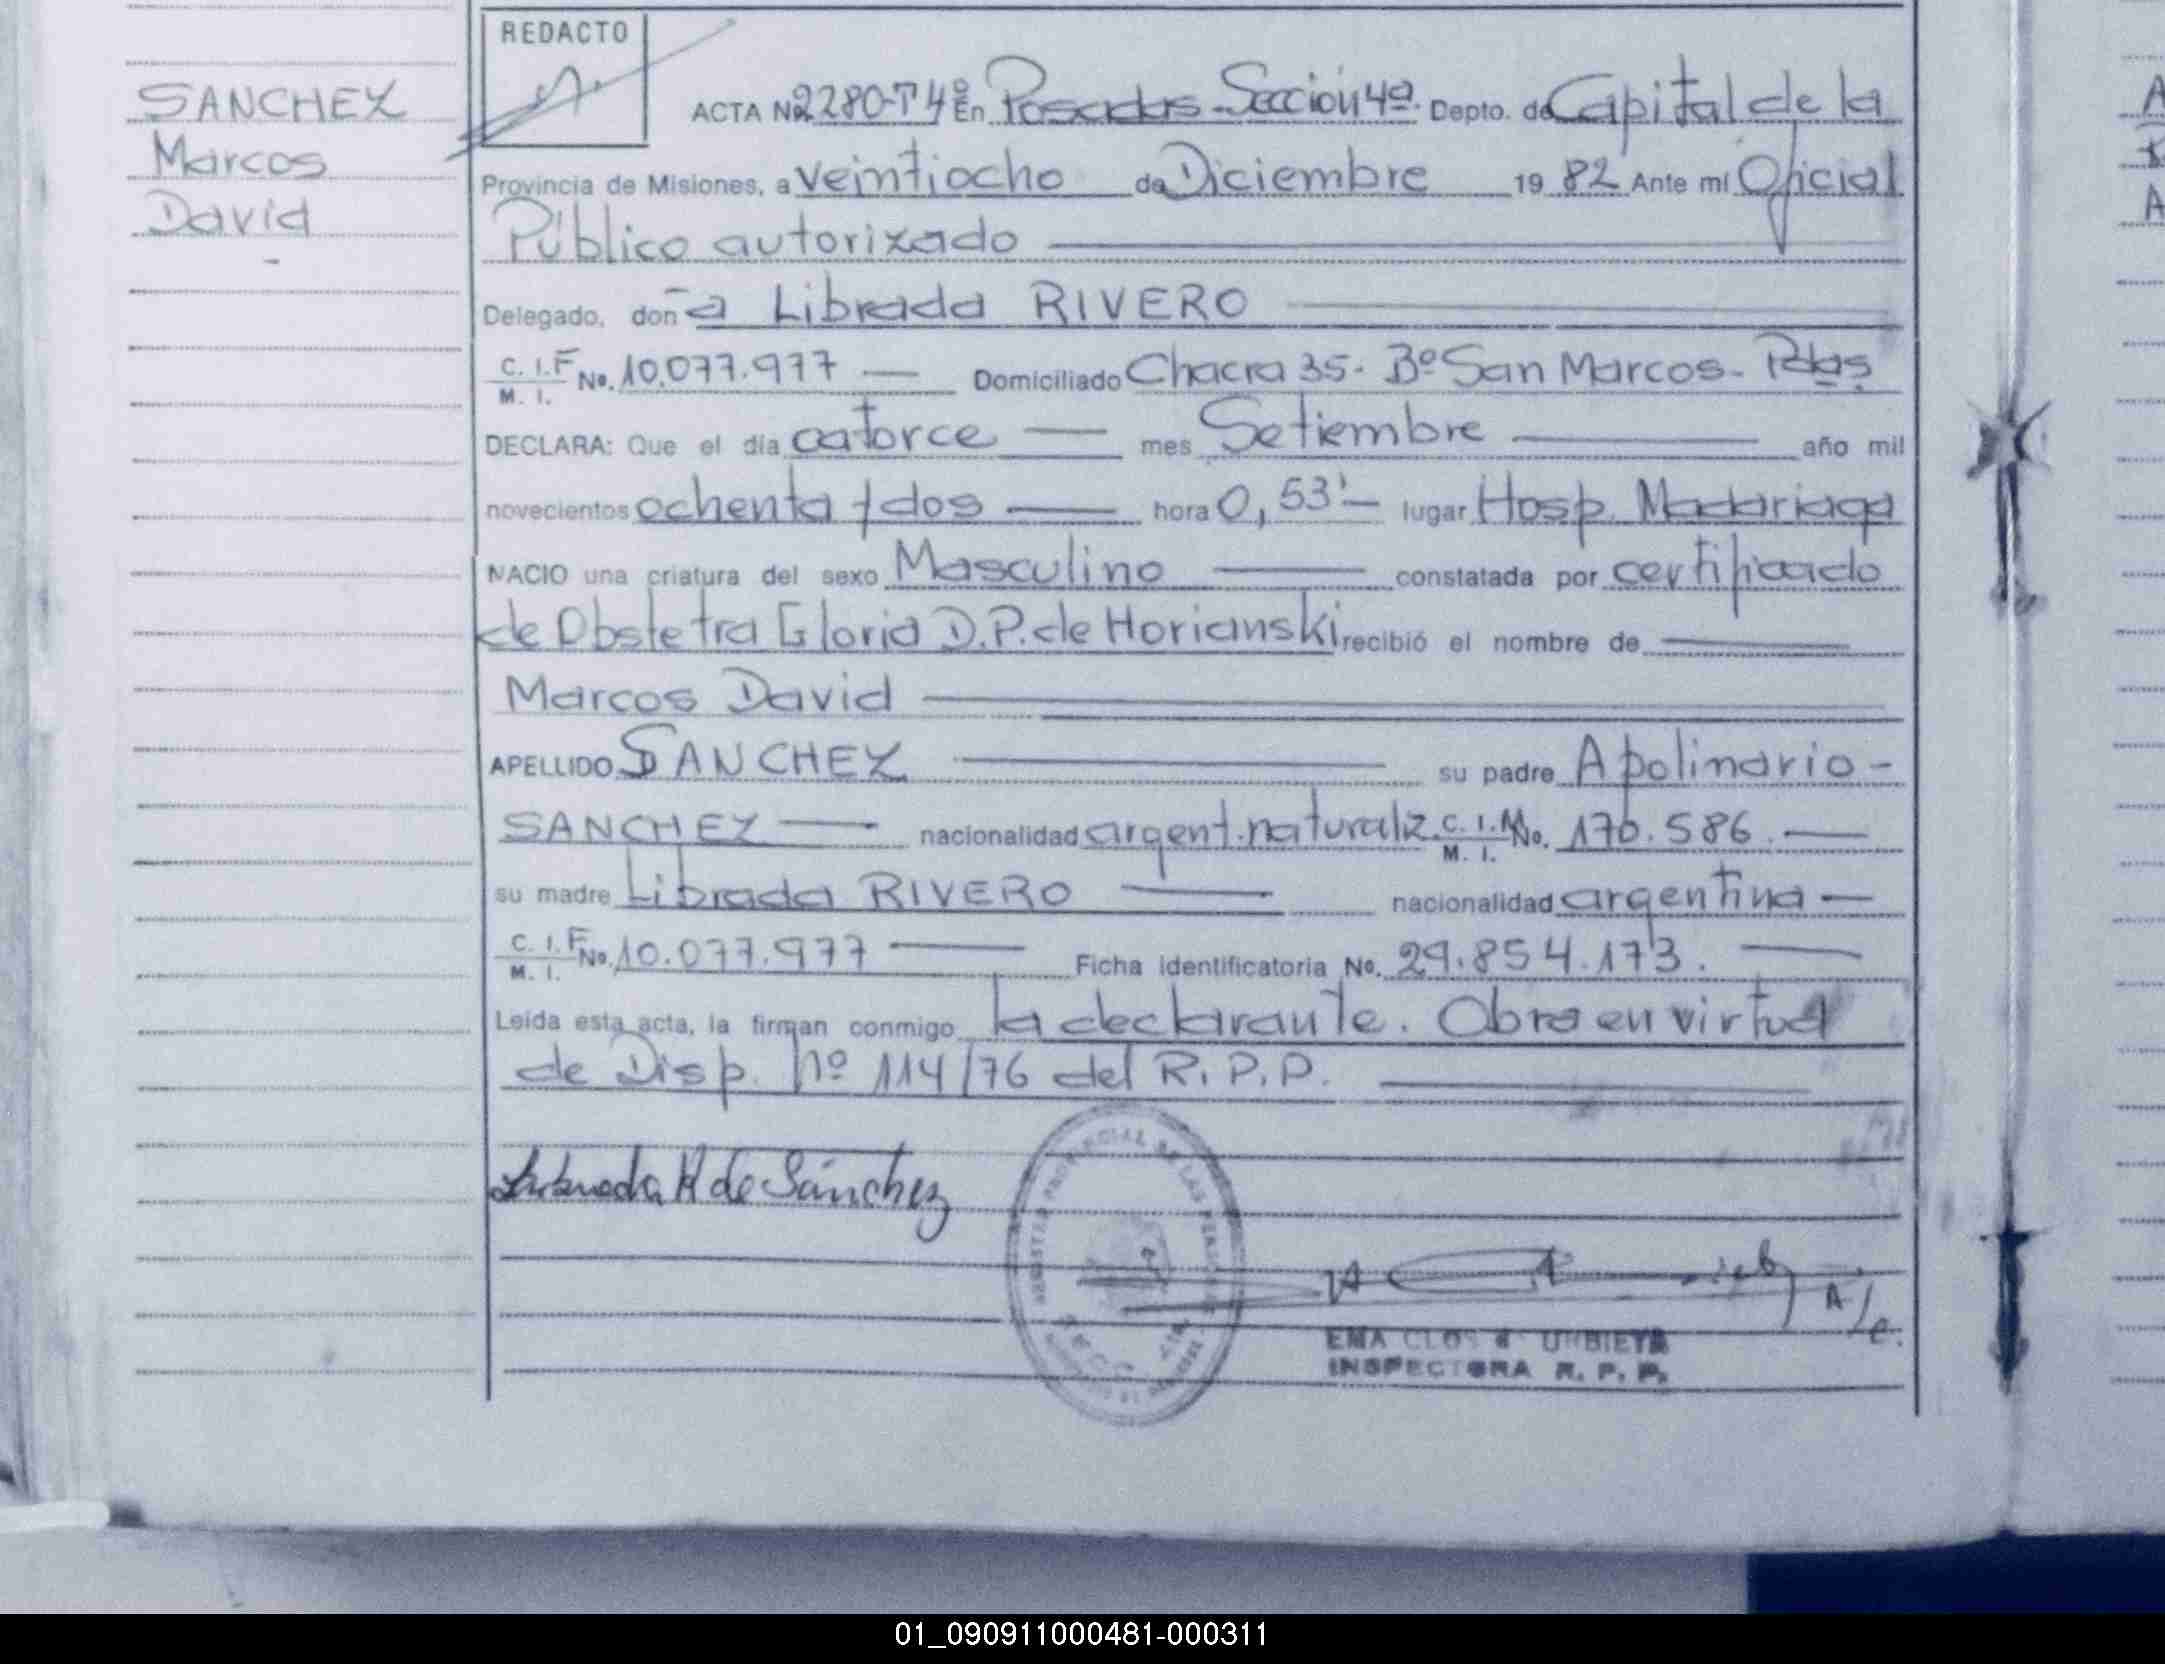 REDACTO
SANCHEZ
Marcos
David
ACTA No 2280-T4º En Posadas-Sección 4ª. Depto. de Capital de la
Provincia de Misiones, a veintiocho de Diciembre 1982 Ante mí Oficial
Público autorizado
Delegado, doña Librada RIVERO
C. I. F No. 10.077.977 — Domiciliado Chacra 35. Bº San Marcos- Pdas
M. I.
DECLARA: Que el día catorce — mes Setiembre — año mil
novecientos ochenta y dos — hora 0,53' — lugar Hosp. Madariaga
NACIO una criatura del sexo Masculino — constatada por certificado
de Obstetra Gloria D.P. de Horianski recibió el nombre de —
Marcos David
APELLIDO SANCHEZ — su padre Apolinario -
SANCHEZ — nacionalidad argent. naturaliz. C. I. M No. 170.586. —
M. I.
su madre Librada RIVERO — nacionalidad argentina —
C. I. F No. 10.077.977 — Ficha identificatoria No. 29.854.173. —
M. I.
Leída esta acta, la firman conmigo la declarante. Obra en virtud
de Disp. nº 114/76 del R.P.P.
Librada R de Sánchez
REGISTRO PROVINCIAL DE LAS PERSONAS
A/c.
EMA CLOS de URBIETA
INSPECTORA R. P. P.
01_090911000481-000311